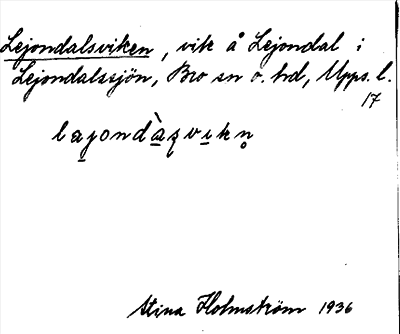 Lejondalsviken, vik å Lejondal i
Lejondalssjön, Bro sn o. hd, Upps. l.
17
lajondàsvikn
Stina Holmström 1936